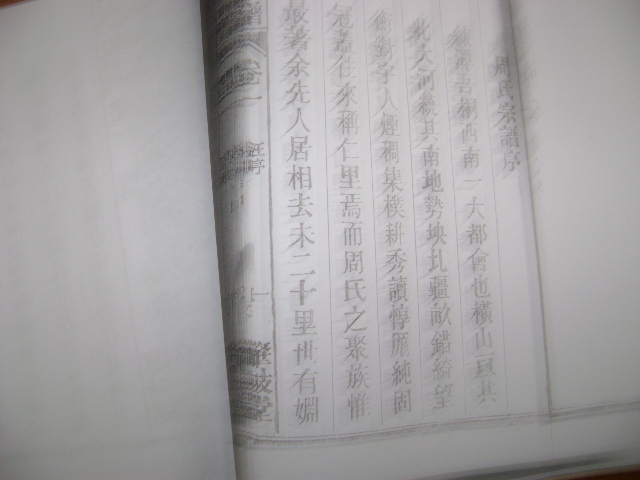 周氏宗譜序
吾桐西南一大都會也橫山亘其
北大河繞其南地勢坱圠疆畝錯綺望
衡對宇人煙稠集樸耕秀讀惇龐純固
氣葢往來稱仁里焉而周氏之聚族惟
最著余先人居相去未二十里世有姻
譜 卷一
汪序